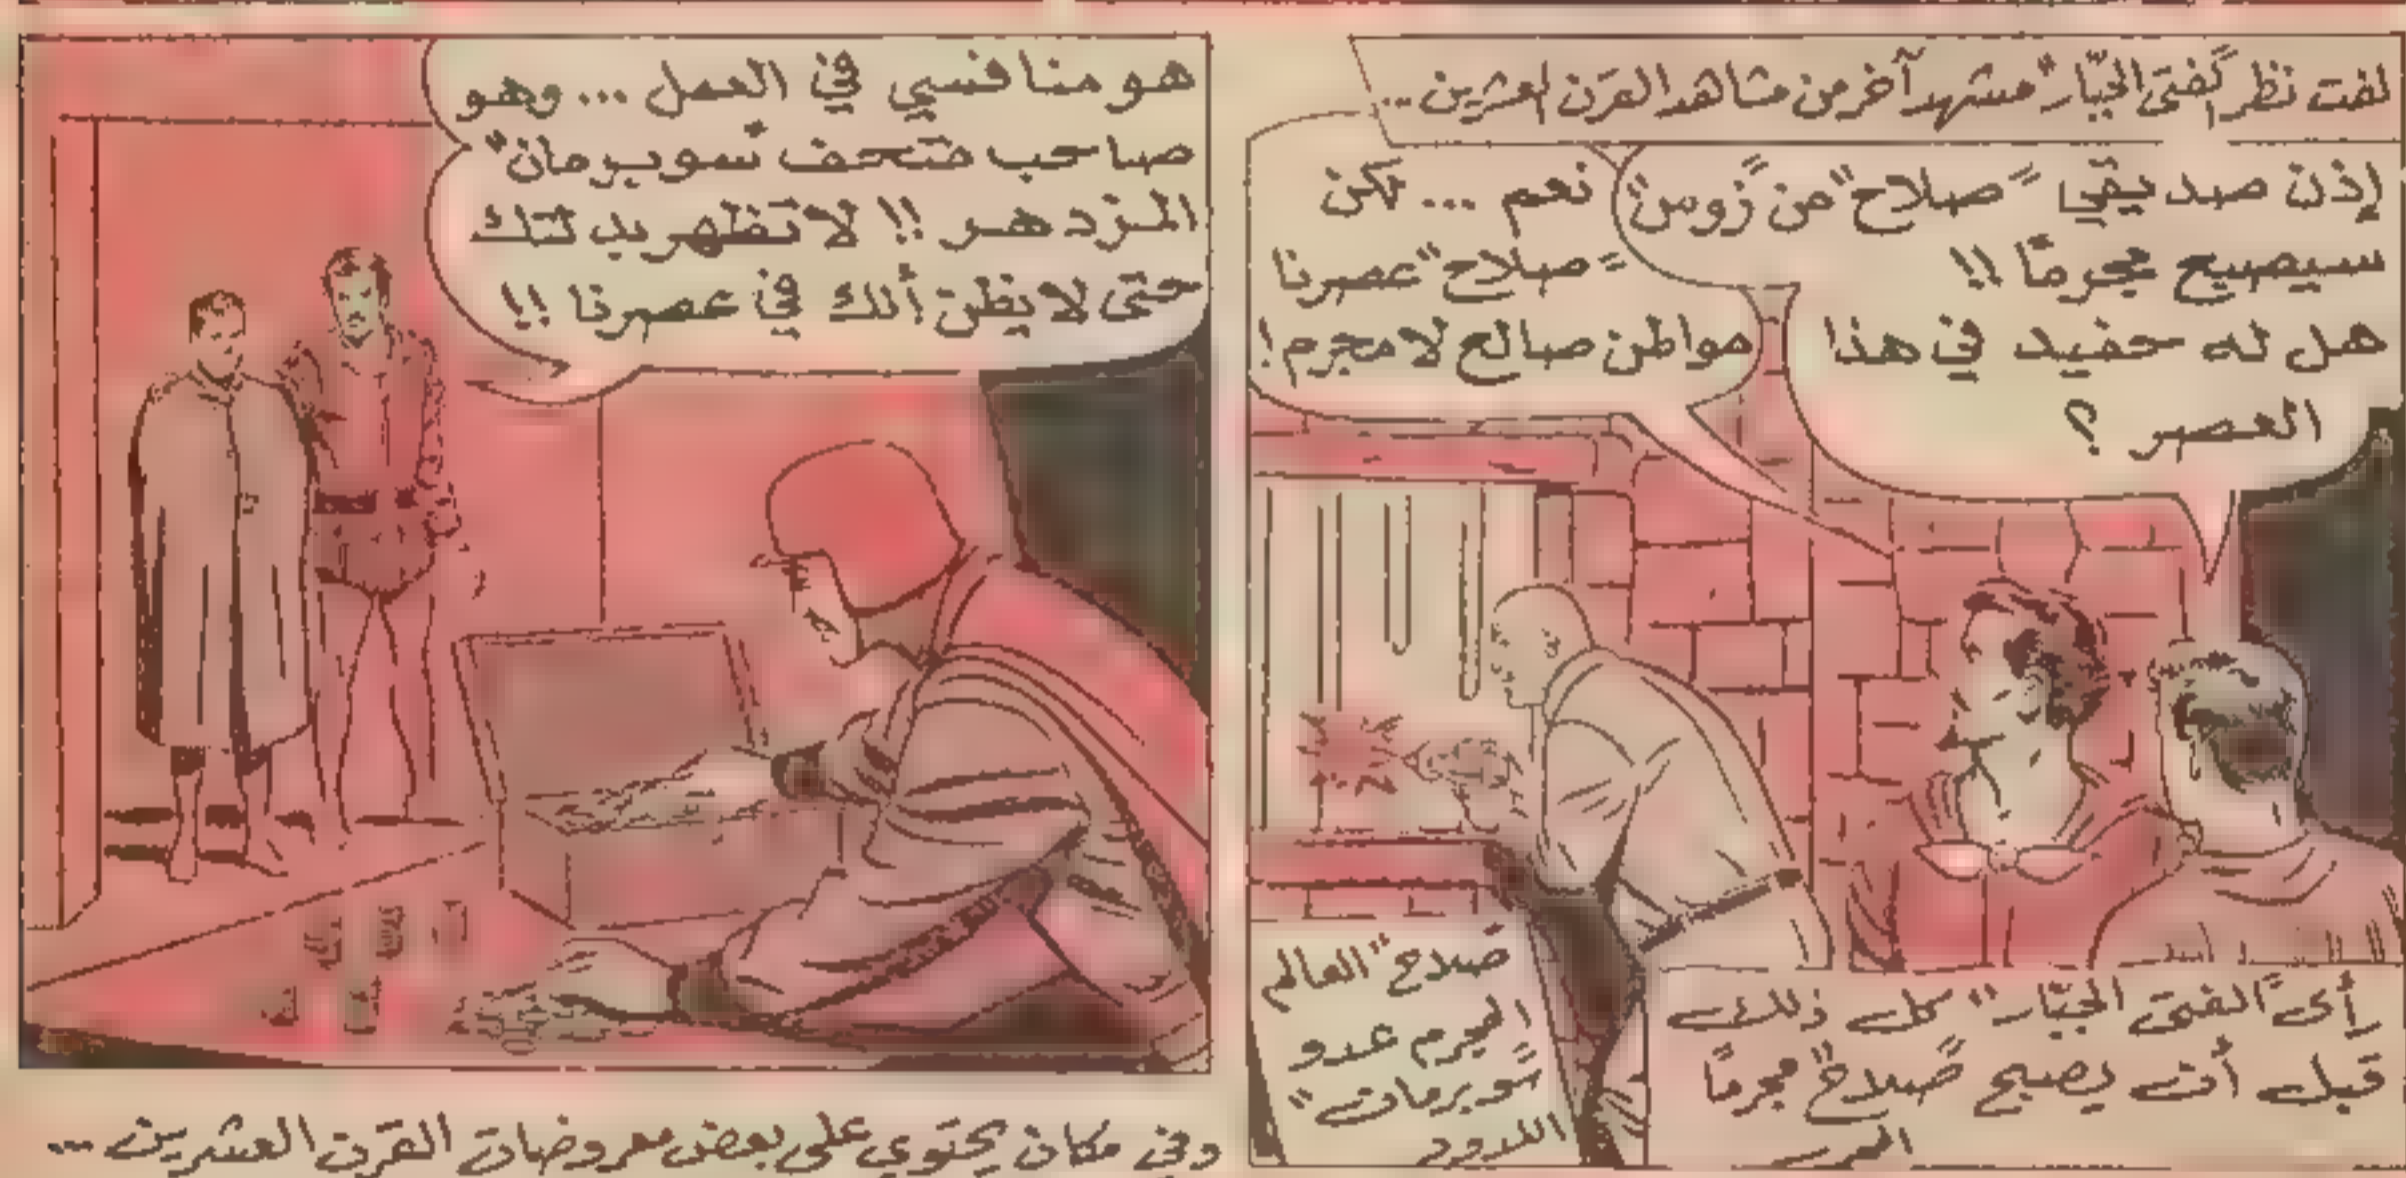 لفت نظر "الفتى الجبّار" مشهد آخر من مشاهد القرن العشرين...
إذن صديقي "صلاح" من "زوس"
سيصبح مجرمًا !!
هل له حفيد في هذا
العصر ؟
نعم ... لكن
"صلاح" عصرنا
مواطن صالح لا مجرم !
"صلاح" العالم
المجرم عدو
"سوبرمان"
اللدود
رأى "الفتى الجبّار" كل ذلك
قبل أن يصبح "صلاح" مجرمًا
هو منافسي في العمل ... وهو
صاحب متحف "سوبرمان"
المزدهر !! لا تظهر يديك
حتى لا يظن أنك في عصرنا !!
وفي مكان يحتوي على بعض معروضات القرن العشرين ...